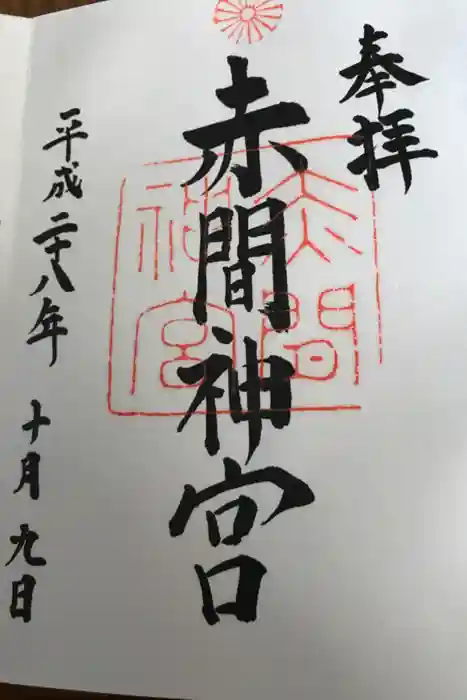 奉拝
赤間神宮
赤間
神宮
平成二十八年 十月九日